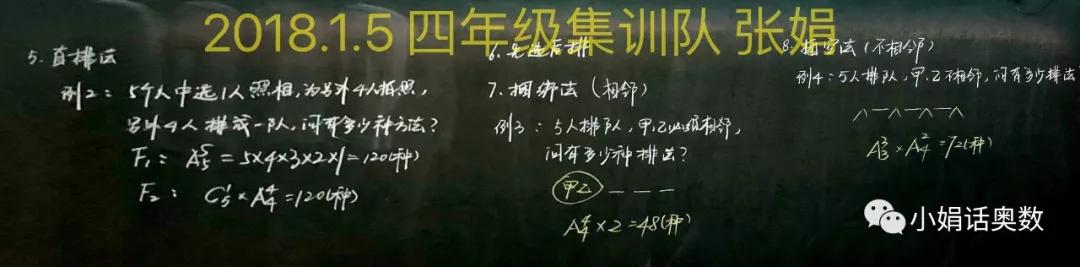 2018.1.5 四年级集训队 张娟
5. 直排法
例2: 5个人中选1人照相,为另外4人拍照,
另外4人排成一队,问有多少种方法?
F₁: A⁵₅ = 5×4×3×2×1=120(种)
F₂: C¹₅×A⁴₄=120(种)
6. 先选后排
7. 捆绑法(相邻)
例3: 5人排队,甲、乙必须相邻,
问有多少种排法?
甲乙 — — —
A⁴₄×2=48(种)
8. 插空法(不相邻)
例4: 5人排队,甲、乙不相邻,问有多少排法
∧—∧—∧—∧
A³₃×A²₄=72(种)
小娟话奥数